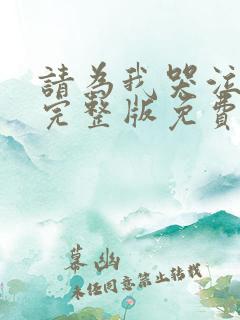 請為我哭泣
完整版免費
幕幽
未經同意禁止轉載